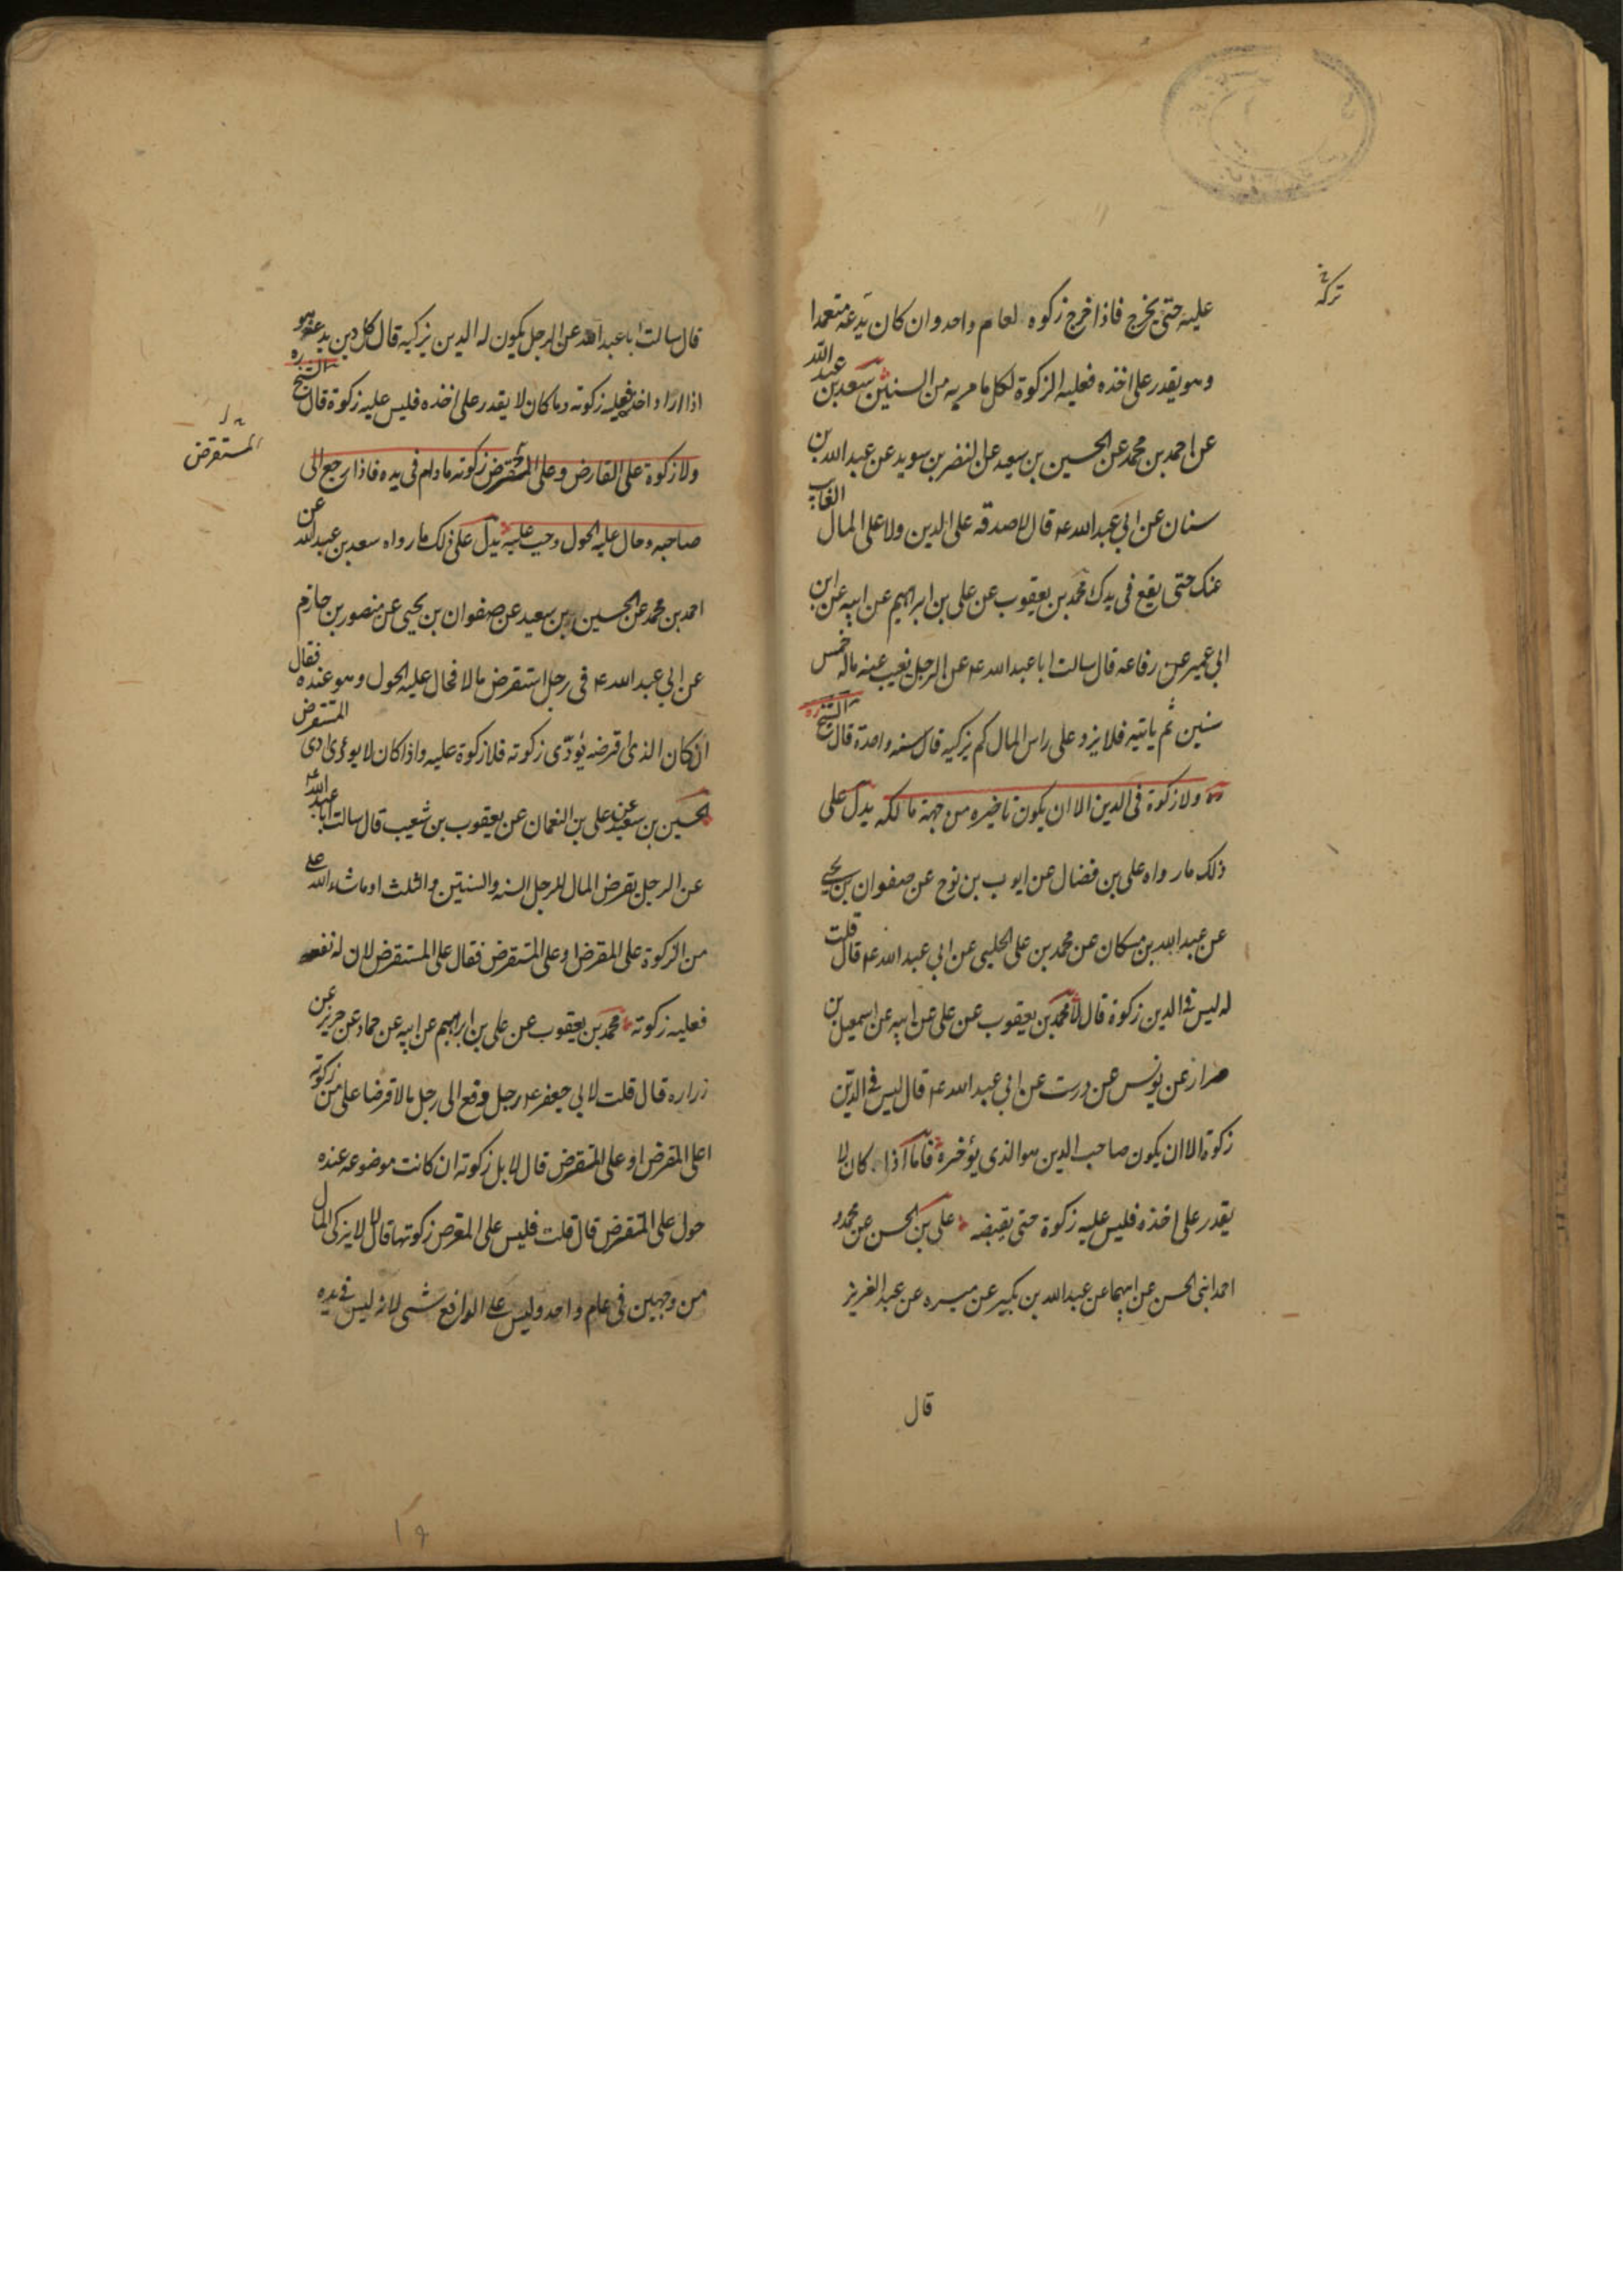 تركه خ
عليه حتى يخرج فاذا خرج زكوه لعام واحد وان كان يدعه متعمدا
وهو يقدر على اخذه فعليه الزكوة لكل ما مر به من السنين سعد بن عبد الله
عن احمد بن محمد عن الحسين بن سعيد عن النضر بن سويد عن عبد الله بن
سنان عن ابي عبد الله ع قال لا صدقه على الدين ولا على المال الغايب
عنك حتى يقع في يدك محمد بن يعقوب عن علي بن ابراهيم عن ابيه عن ابن
ابي عمير عن رفاعه قال سالت ابا عبد الله ع عن الرجل يغيب عنه ماله خمس
سنين ثم ياتيه فلا يرد على راس المال كم يزكيه قال سنه واحدة قال الشيخ ره
ولا زكوة في الدين الا ان يكون تاخيره من جهة مالكه يدل على
ذلك ما رواه علي بن فضال عن ايوب بن نوح عن صفوان بن يحيى
عن عبد الله بن مسكان عن محمد بن علي الحلبي عن ابي عبد الله ع قال قلت
له ليس في الدين زكوة قال لا محمد بن يعقوب عن علي عن ابيه عن اسمعيل بن
مرار عن يونس عن درست عن ابي عبد الله ع قال ليس في الدين
زكوة الا ان يكون صاحب الدين هو الذي يؤخره فاما اذا كان لا
يقدر على اخذه فليس عليه زكوة حتى يقبضه علي بن الحسن عن محمد و
احمد ابني الحسن عن ابيهما عن عبد الله بن بكير عن ميسره عن عبد العزيز
قال
قال سالت ابا عبد الله عن الرجل يكون له الدين يزكيه قال كل دين يدعه هو
اذا اراد اخذه فعليه زكوته وما كان لا يقدر على اخذه فليس عليه زكوة قال الشيخ ره
المستقرض
ولا زكوة على القارض وعلى المقترض زكوته ما دام في يده فاذا رجع الى
صاحبه وحال عليه الحول وجب عليه يدل على ذلك ما رواه سعد بن عبد الله عن
احمد بن محمد عن الحسين بن سعيد عن صفوان بن يحيى عن منصور بن حازم
عن ابي عبد الله ع في رجل استقرض مالا فحال عليه الحول وهو عنده فقال
ان كان الذي اقرضه يؤدى زكوته فلا زكوة عليه واذا كان لا يؤدى ادى المستقرض
الحسين بن سعيد عن علي بن النعمان عن يعقوب بن شعيب قال سالت ابا عبد الله ع
عن الرجل يقرض المال للرجل السنه والسنتين والثلث او ما شاء الله على
من الزكوة على المقرض او على المستقرض فقال على المستقرض لان له نفعه
فعليه زكوته محمد بن يعقوب عن علي بن ابراهيم عن ابيه عن حماد عن حريز عن
زراره قال قلت لابي جعفر ع رجل دفع الى رجل مالا قرضا على من زكوته
اعلى المقرض او على المقترض قال لا بل زكوته ان كانت موضوعه عنده
حول على المقترض قال قلت فليس على المقرض زكوتها قال لا لا يزكى المال
من وجهين في عام واحد وليس على الدافع شى لانه ليس في يده